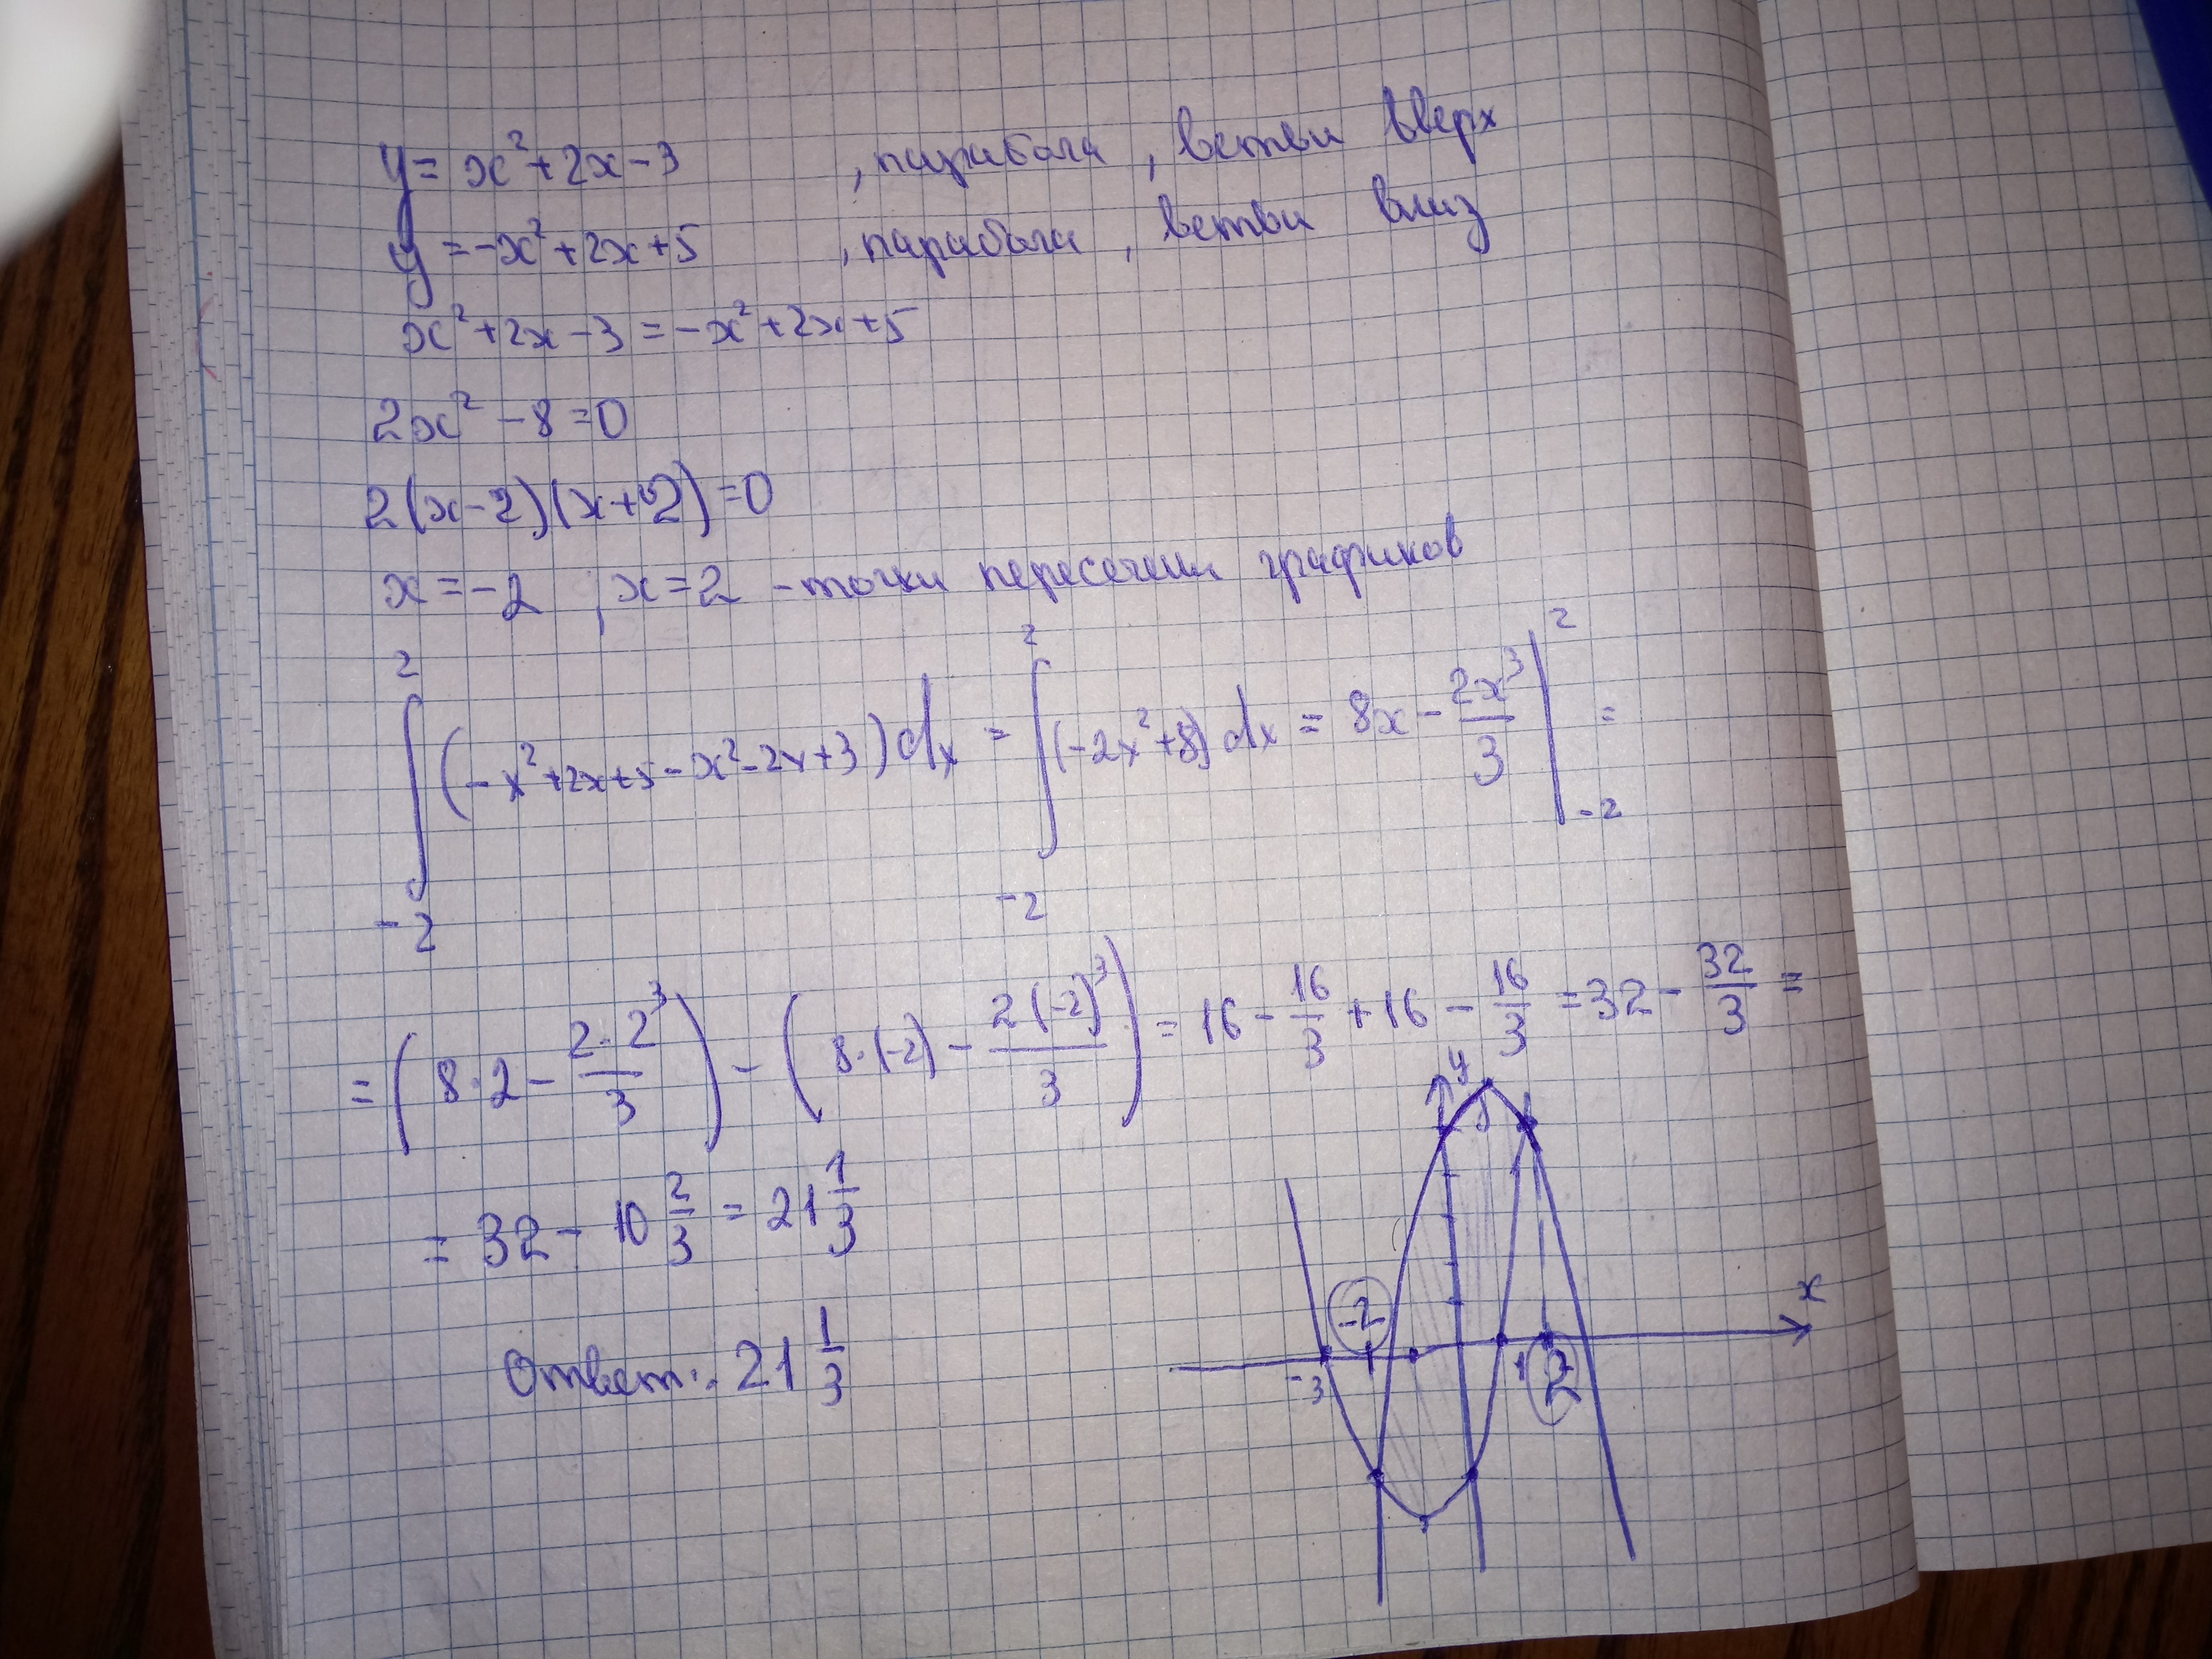 y = x² + 2x - 3 , парабола , ветви вверх
y = -x² + 2x + 5 , парабола , ветви вниз
x² + 2x - 3 = -x² + 2x + 5
2x² - 8 = 0
2(x - 2)(x + 2) = 0
x = -2 , x = 2 - точки пересечения графиков
∫₋₂² (-x² + 2x + 5 - x² - 2x + 3) dx = ∫₋₂² (-2x² + 8) dx = 8x - 2x³/3 |₋₂² =
= (8·2 - 2·2³/3) - (8·(-2) - 2(-2)³/3) = 16 - 16/3 + 16 - 16/3 = 32 - 32/3 =
= 32 - 10 2/3 = 21 1/3
Ответ: 21 1/3
y
x
-2
-3
1
2